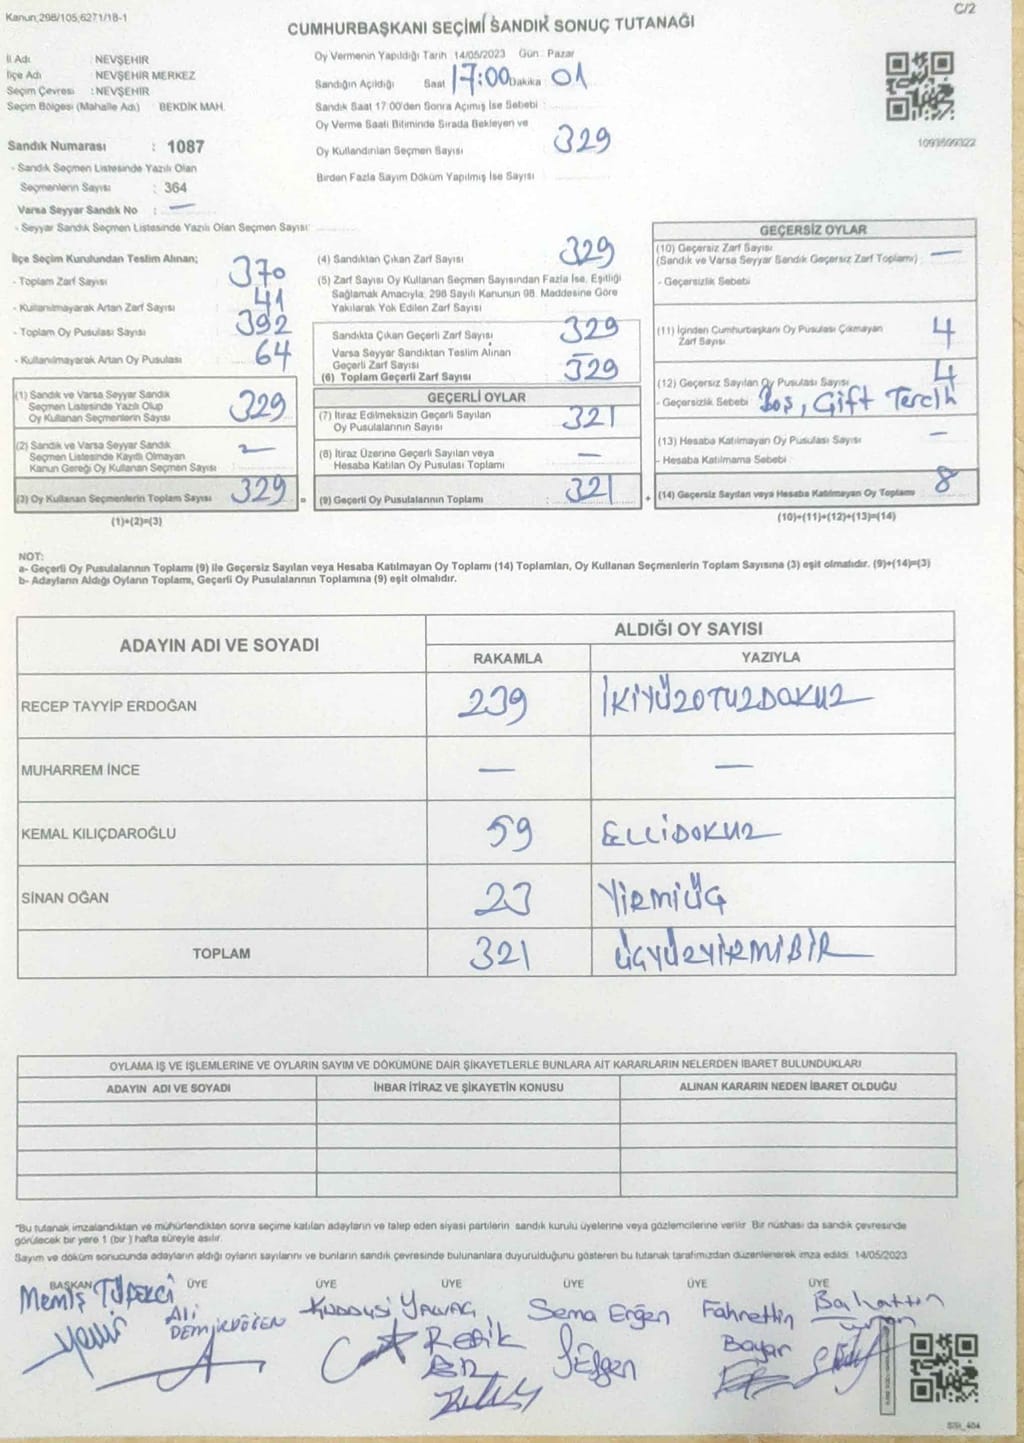 Kanun;298/105,6271/18-1
C/2
CUMHURBAŞKANI SEÇİMİ SANDIK SONUÇ TUTANAĞI
İl Adı : NEVŞEHİR
İlçe Adı : NEVŞEHİR MERKEZ
Seçim Çevresi : NEVŞEHİR
Seçim Bölgesi (Mahalle Adı) : BEKDİK MAH.
Sandık Numarası : 1087
- Sandık Seçmen Listesinde Yazılı Olan
Seçmenlerin Sayısı : 364
Varsa Seyyar Sandık No : —
- Seyyar Sandık Seçmen Listesinde Yazılı Olan Seçmen Sayısı:
Oy Vermenin Yapıldığı Tarih 14/05/2023 Gün : Pazar
Sandığın Açıldığı Saat 17:00 Dakika 01
Sandık Saat 17:00'den Sonra Açımış İse Sebebi :
Oy Verme Saati Bitiminde Sırada Bekleyen ve
Oy Kullandırılan Seçmen Sayısı 329
Birden Fazla Sayım Döküm Yapılmış İse Sayısı
1093599322
İlçe Seçim Kurulundan Teslim Alınan;
- Toplam Zarf Sayısı 370
- Kullanılmayarak Artan Zarf Sayısı 41
- Toplam Oy Pusulası Sayısı 392
- Kullanılmayarak Artan Oy Pusulası 64
(1) Sandık ve Varsa Seyyar Sandık
Seçmen Listesinde Yazılı Olup
Oy Kullanan Seçmenlerin Sayısı 329
(2) Sandık ve Varsa Seyyar Sandık
Seçmen Listesinde Kayıtlı Olmayan
Kanun Gereği Oy Kullanan Seçmen Sayısı —
(3) Oy Kullanan Seçmenlerin Toplam Sayısı 329 =
(1)+(2)=(3)
(4) Sandıktan Çıkan Zarf Sayısı 329
(5) Zarf Sayısı Oy Kullanan Seçmen Sayısından Fazla İse, Eşitliği
Sağlamak Amacıyla, 298 Sayılı Kanunun 98. Maddesine Göre
Yakılarak Yok Edilen Zarf Sayısı
Sandıkta Çıkan Geçerli Zarf Sayısı 329
Varsa Seyyar Sandıktan Teslim Alınan
Geçerli Zarf Sayısı —
(6) Toplam Geçerli Zarf Sayısı 329
GEÇERLİ OYLAR
(7) İtiraz Edilmeksizin Geçerli Sayılan
Oy Pusulalarının Sayısı 321
(8) İtiraz Üzerine Geçerli Sayılan veya
Hesaba Katılan Oy Pusulası Toplamı —
(9) Geçerli Oy Pusulalarının Toplamı : 321 +
GEÇERSİZ OYLAR
(10) Geçersiz Zarf Sayısı
(Sandık ve Varsa Seyyar Sandık Geçersiz Zarf Toplamı) —
- Geçersizlik Sebebi
(11) İçinden Cumhurbaşkanı Oy Pusulası Çıkmayan
Zarf Sayısı 4
(12) Geçersiz Sayılan Oy Pusulası Sayısı 4
- Geçersizlik Sebebi Boş, Çift Tercih
(13) Hesaba Katılmayan Oy Pusulası Sayısı —
- Hesaba Katılmama Sebebi
(14) Geçersiz Sayılan veya Hesaba Katılmayan Oy Toplamı 8
(10)+(11)+(12)+(13)=(14)
NOT:
a- Geçerli Oy Pusulalarının Toplamı (9) ile Geçersiz Sayılan veya Hesaba Katılmayan Oy Toplamı (14) Toplamları, Oy Kullanan Seçmenlerin Toplam Sayısına (3) eşit olmalıdır. (9)+(14)=(3)
b- Adayların Aldığı Oyların Toplamı, Geçerli Oy Pusulalarının Toplamına (9) eşit olmalıdır.
ADAYIN ADI VE SOYADI
ALDIĞI OY SAYISI
RAKAMLA YAZIYLA
RECEP TAYYİP ERDOĞAN 239 İKİYÜZOTUZDOKUZ
MUHARREM İNCE — —
KEMAL KILIÇDAROĞLU 59 ELLİDOKUZ
SİNAN OĞAN 23 YİRMİÜÇ
TOPLAM 321 ÜÇYÜZYİRMİBİR
OYLAMA İŞ VE İŞLEMLERİNE VE OYLARIN SAYIM VE DÖKÜMÜNE DAİR ŞİKAYETLERLE BUNLARA AİT KARARLARIN NELERDEN İBARET BULUNDUKLARI
ADAYIN ADI VE SOYADI İHBAR İTİRAZ VE ŞİKAYETİN KONUSU ALINAN KARARIN NEDEN İBARET OLDUĞU
*Bu tutanak imzalandıktan ve mühürlendikten sonra seçime katılan adayların ve talep eden siyasi partilerin sandık kurulu üyelerine veya gözlemcilerine verilir. Bir nüshası da sandık çevresinde
görülecek bir yere 1 (bir) hafta süreyle asılır.
Sayım ve döküm sonucunda adayların aldığı oyların sayılarını ve bunların sandık çevresinde bulunanlara duyurulduğunu gösteren bu tutanak tarafımızdan düzenlenerek imza edildi. 14/05/2023
BAŞKAN ÜYE ÜYE ÜYE ÜYE ÜYE ÜYE
Memiş TÜFEKCİ
Ali DEMİRDÖĞEN
Kuddusi YALVAÇ
REFİK
Sema Ergen
Fahrettin Bayar
Bahattin